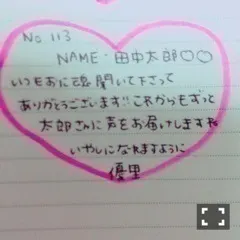 No 113
NAME・田中太郎○○
いつもお心に魂聞いて下さって
ありがとうございます!!これからもずっと
太郎さんに声をお届けしますね
いやしになれますように
優里